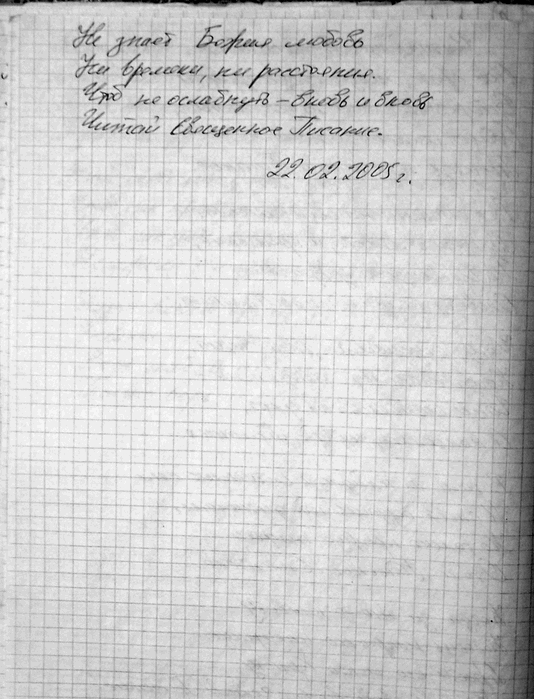 Не знает Божия любовь
Ни времени, ни расстояния.
Чтоб не ослабнуть - вновь и вновь
Читай Священное Писание.
22.02.2005 г.